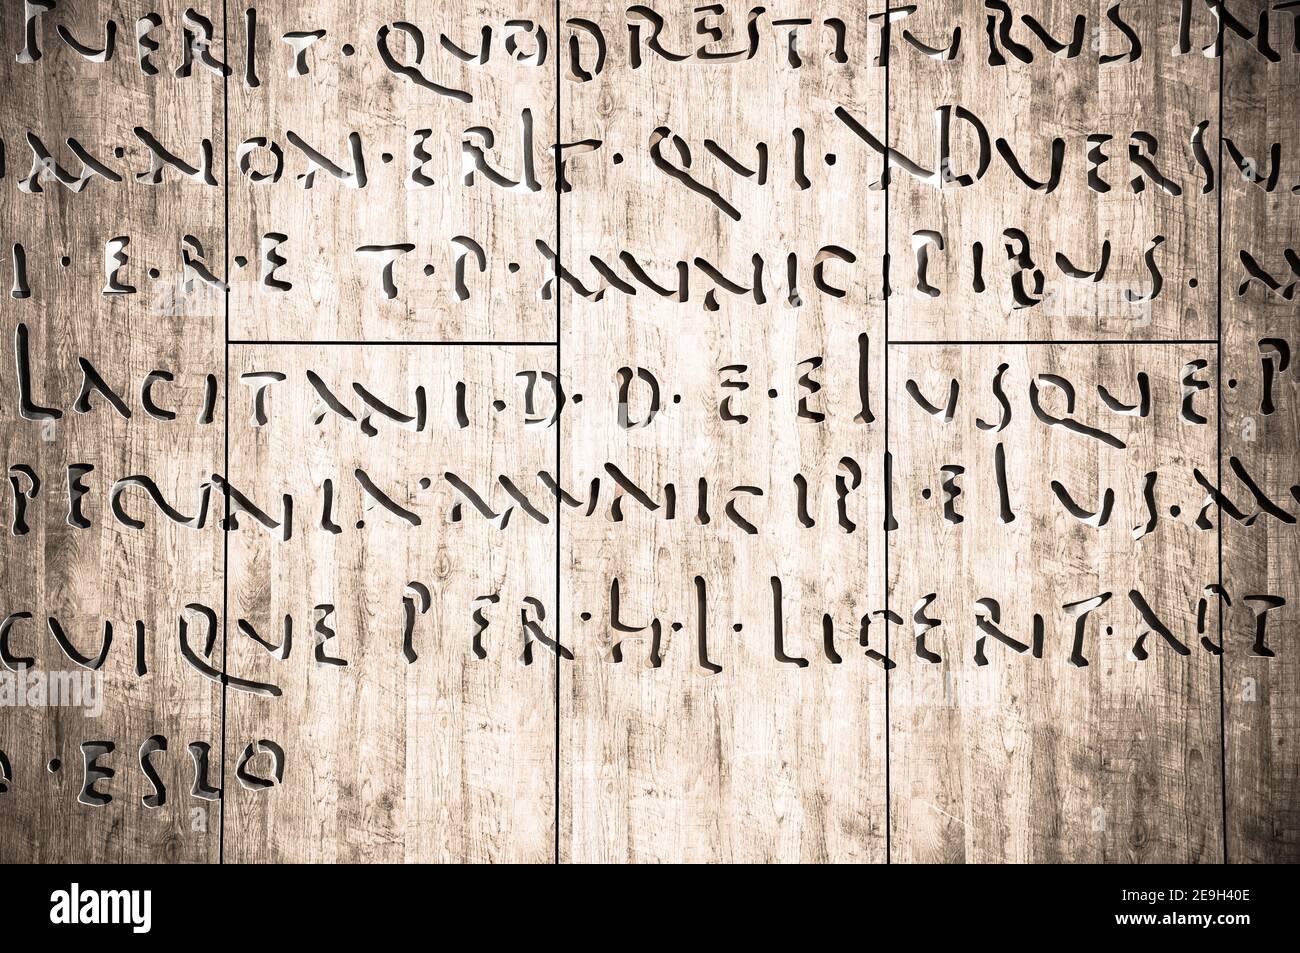 TUERIT·QUOD RESTITURUS INT
AM·NON·ERIT·QUI·ADVERSU
I·E·R·E T·P·MUNICIPIBUS·M
LACITANI·D·D·E·EIUSQUE·P
PEQUNIA·MUNICIPI·EIUS·M
CUIQUE PER·H·L·LICENT·ACT
O·ESLO
alamy
Image ID: 2E9H40E
www.alamy.com